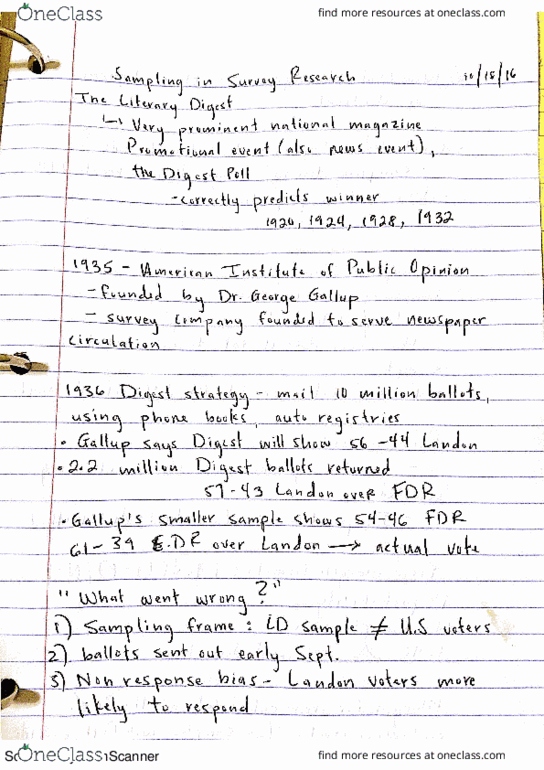 OneClass
find more resources at oneclass.com
Sampling in Survey Research 10/18/16
The Literary Digest
↳ Very prominent national magazine
Promotional event (also news event),
the Digest Poll
-correctly predicts winner
1920, 1924, 1928, 1932
1935 - American Institute of Public Opinion
- founded by Dr. George Gallup
- survey company founded to serve newspaper
circulation
1936 Digest strategy - mail 10 million ballots,
using phone books, auto registries
• Gallup says Digest will show 56-44 Landon
• 2.2 million Digest ballots returned
57-43 Landon over FDR
• Gallup's smaller sample shows 54-46 FDR
61-39 FDR over Landon → actual vote
"What went wrong?"
1) Sampling frame: LD sample ≠ U.S voters
2) ballots sent out early Sept.
3) Non response bias - Landon voters more
likely to respond
OneClass
Scanner
find more resources at oneclass.com